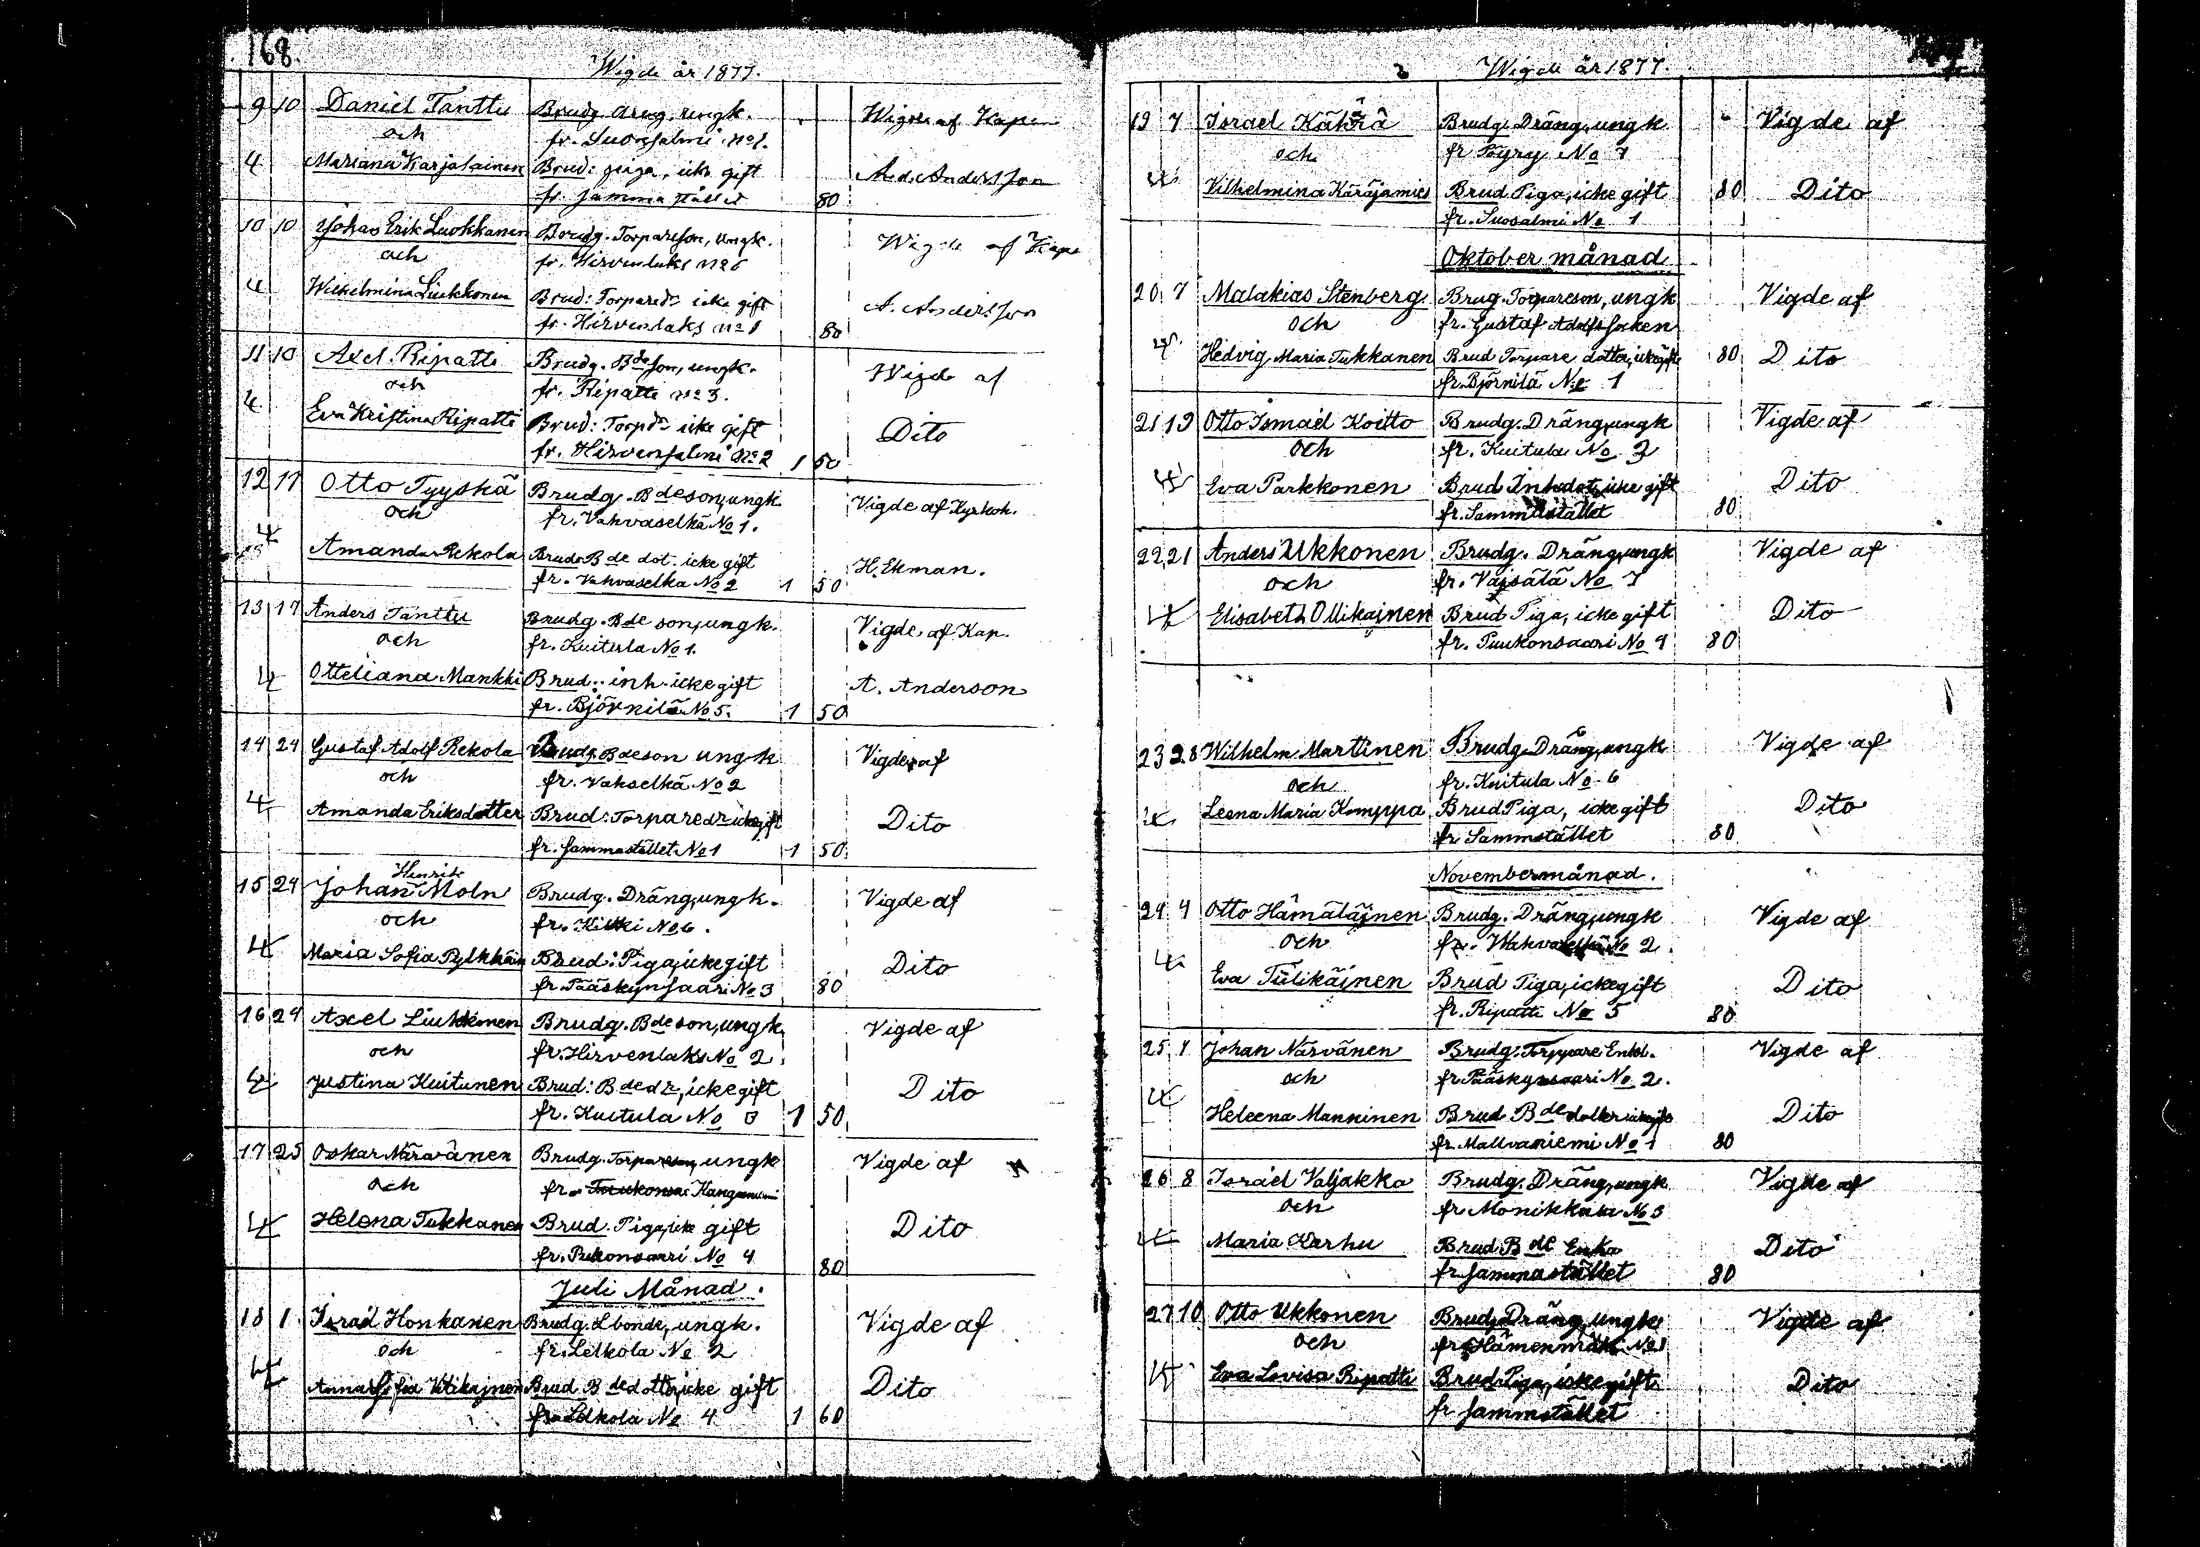 168.
Wigde år 1877.
9 10 Daniel Tanttu Brudg. dräng, ungk. Wigde af Kapn
och fr. Suonsalmi No 1.
4 Mariana Karjalainen Brud: piga, icke gift And. Andersson
fr. samma stället 80
10 10 Johan Erik Luokkanen Brudg. Torpareson, ungk. Wigde af Kapn
och fr. Hirvenlaks No 6
4 Wilhelmina Liukkonen Brud: Torparedr icke gift A. Andersson
fr. Hirvenlaks No 1 80
11 10 Axel Ripatti Brudg. Bdeson, ungk. Wigde af
och fr. Ripatti No 3.
4 Eva Kristina Ripatti Brud: Torpdr icke gift Dito
fr. Hirvensalmi No 2 1 50
12 17 Otto Tyyskä Brudg. Bdeson, ungk. Vigde af Kyrkoh.
och fr. Vahvaselkä No 1.
4 Amanda Rekola Brud: Bde dot. icke gift H. Ekman.
fr. Vahvaselka No 2 1 50
13 17 Anders Tanttu Brudg. Bde son, ungk. Vigde af Kap.
och fr. Kuitula No 1.
4 Otteliana Mankki Brud: inh. icke gift A. Anderson
fr. Björnilä No 5. 1 50
14 24 Gustaf Adolf Rekola Brudg. Bdeson ungk Vigde af
och fr. Vahselkä No 2
4 Amanda Eriksdotter Brud: Torparedr icke gift Dito
fr. sammastället No 1 1 50
Henrik
15 24 Johan Moln Brudg. Dräng, ungk. Vigde af
och fr. No 6.
4 Maria Sofia Pylkkän Brud: Piga, icke gift Dito
fr. Pääskynsaari No 3 80
16 24 Axel Liukkonen Brudg. Bdeson, ungk Vigde af
och fr. Hirvenlaks No 2
4 Justina Kuitunen Brud: Bdedr, icke gift Dito
fr. Kuitula No 3 1 50
17 25 Oskar Närvänen Brudg. Torpareson, ungk Vigde af
och fr.
4 Helena Tukkanen Brud. Piga, icke gift Dito
fr. Pukonsaari No 4 80
Juli Månad.
18 1 Israel Honkanen Brudg. Lbonde, ungk. Vigde af
och fr. Lelkola No 2
4 Anna Sofia Brud Bdedotter icke gift Dito
fr. Lelkola No 4 1 60
Wigde år 1877.
19 7 Israel Kähkä Brudg. Dräng, ungk Vigde af
och fr. Pöyry No 7
4 Vilhelmina Käräjamies Brud Piga, icke gift 80 Dito
fr. Suosalmi No 1
Oktober månad
20 7 Malakias Stenberg Brug. Torpareson, ungk Vigde af
och fr. Gustaf Adolfs socken
4 Hedvig Maria Tukkanen Brud Torpare dotter, icke gift 80 Dito
fr. Björnilä No 1
21 19 Otto Ismael Koitto Brudg. Dräng, ungk Vigde af
och fr. Kuitula No 3
4 Eva Parkkonen Brud Inh. dot, icke gift Dito
fr. Sammastället 80
22 21 Anders Ukkonen Brudg. Dräng, ungk Vigde af
och fr. Väisälä No 7
4 Elisabeth Ollikainen Brud Piga, icke gift Dito
fr. Puukonsaari No 4 80
23 28 Wilhelm Marttinen Brudg. Dräng, ungk Vigde af
och fr. Kuitula No 6
4 Leena Maria Komppa Brud Piga, icke gift Dito
fr. Sammstället 80
Novembermånad.
24 4 Otto Hämäläinen Brudg. Dräng, ungk Vigde af
och fr. No 2.
4 Eva Tulikäinen Brud Piga, icke gift Dito
fr. Ripatti No 5 80
25 4 Johan Närvänen Brudg. Torppare Enkl. Vigde af
och fr. Pääskynsaari No 2.
4 Heleena Manninen Brud Bdedotter icke gift Dito
fr. Mallvaniemi No 1 80
26 8 Israel Valjakka Brudg. Dräng, ungk Vigde af
och fr. Monikkala No 3
4 Maria Karhu Brud Bde Enka Dito
fr. sammastället 80
27 10 Otto Ukkonen Brudg. Dräng, ungk Vigde af
och fr. Hämenmäki No 1
4 Eva Lovisa Ripatti Brud Piga, icke gift Dito
fr. sammstället